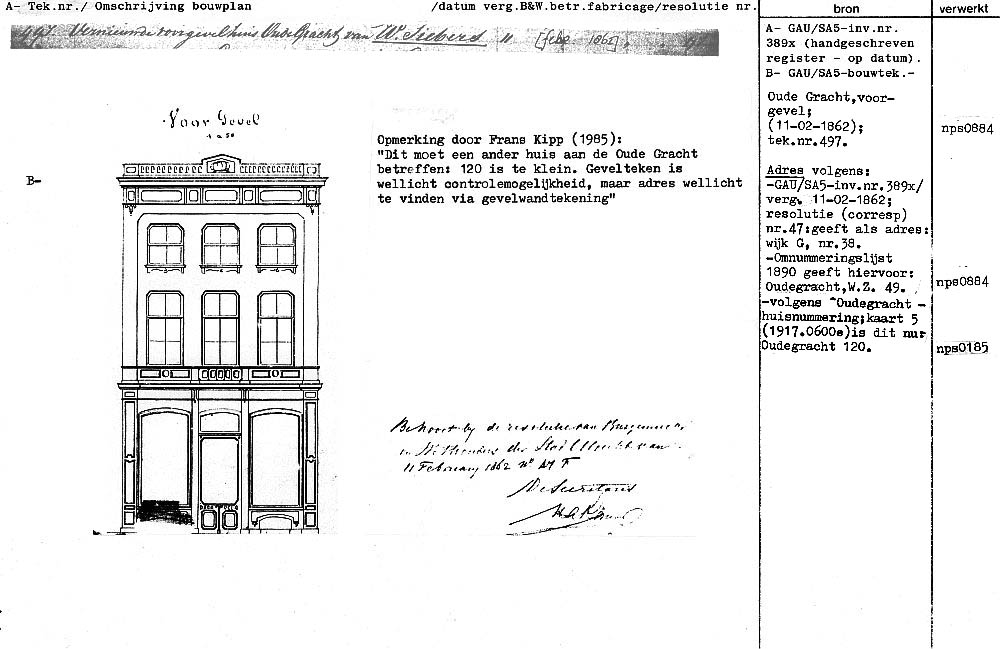 A- Tek.nr./ Omschrijving bouwplan /datum verg.B&W.betr.fabricage/resolutie nr.
497. Vernieuwde voorgevel huis Oude Gracht van W. Siebers 11 [febr. 1862]
Voor Gevel
1 a 50
B-
Opmerking door Frans Kipp (1985):
"Dit moet een ander huis aan de Oude Gracht
betreffen: 120 is te klein. Gevelteken is
wellicht controlemogelijkheid, maar adres wellicht
te vinden via gevelwandtekening"
Behoort bij de resolutie van Burgemeester
en Wethouders der Stad Utrecht van
11 February 1862 N° 47 F
De Secretaris
bron
A- GAU/SA5-inv.nr.
389x (handgeschreven
register - op datum).
B- GAU/SA5-bouwtek.-
Oude Gracht,voor-
gevel;
(11-02-1862);
tek.nr.497.
Adres volgens:
-GAU/SA5-inv.nr.389x/
verg. 11-02-1862;
resolutie (corresp)
nr.47:geeft als adres:
wijk G, nr.38.
-Omnummeringslijst
1890 geeft hiervoor:
Oudegracht,W.Z. 49.
-volgens "Oudegracht -
huisnummering;kaart 5
(1917.0600e)is dit nu:
Oudegracht 120.
verwerkt
nps0884
nps0884
nps0185